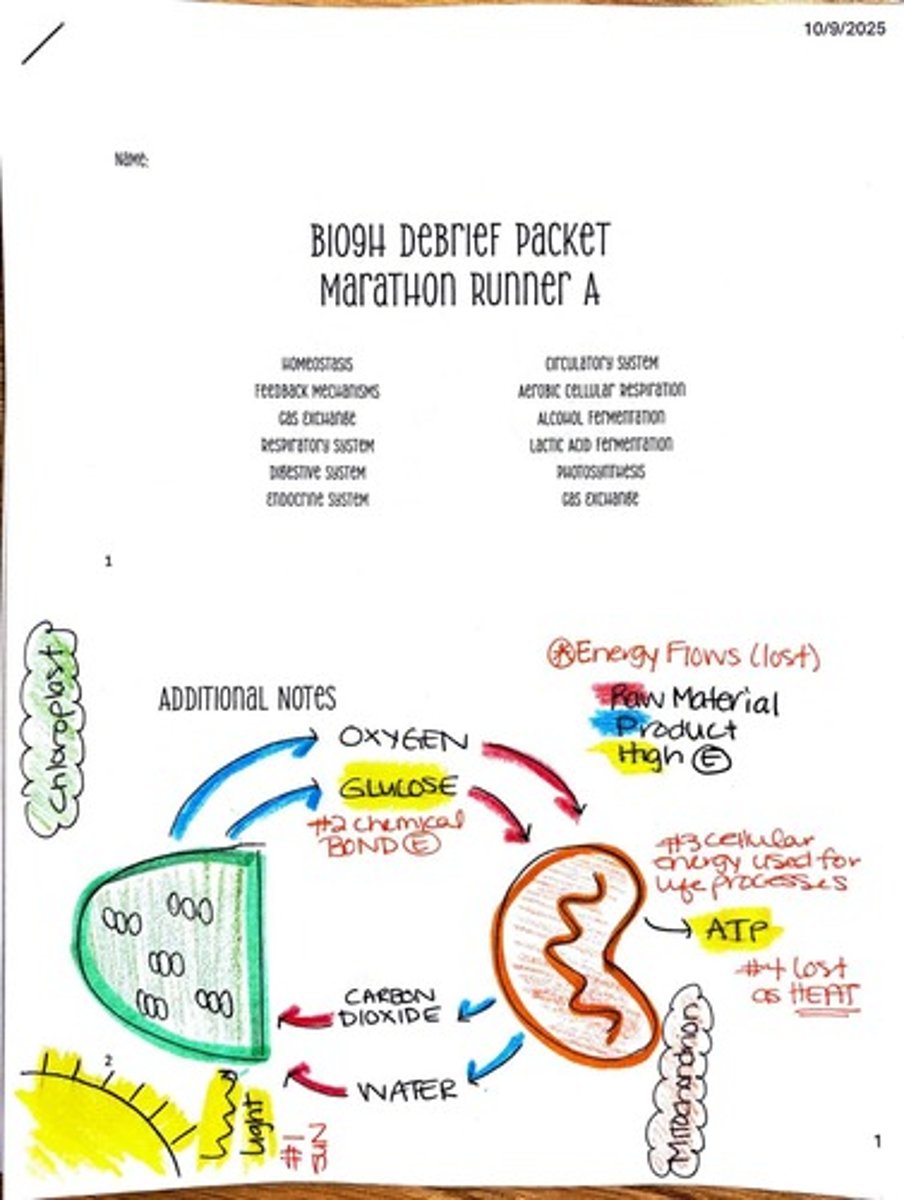 10/9/2025
Name:
BIO9H DEBRIEF PACKET
MARATHON RUNNER A
HOMEOSTASIS
FEEDBACK MECHANISMS
GAS EXCHANGE
RESPIRATORY SYSTEM
DIGESTIVE SYSTEM
ENDOCRINE SYSTEM
CIRCULATORY SYSTEM
AEROBIC CELLULAR RESPIRATION
ALCOHOL FERMENTATION
LACTIC ACID FERMENTATION
PHOTOSYNTHESIS
GAS EXCHANGE
1
Chloroplast
Energy Flows (lost)
Raw Material
Product
High E
ADDITIONAL NOTES
OXYGEN
GLUCOSE
#2 chemical
BOND E
#3 cellular
energy used for
life processes
ATP
#4 lost
as HEAT
CARBON
DIOXIDE
WATER
Mitochondrion
2
Light
#1
1